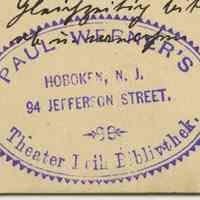 Gleichzeitig bit
PAUL WERNER'S
HOBOKEN, N. J.
94 JEFFERSON STREET.
Theater Bibliothek.